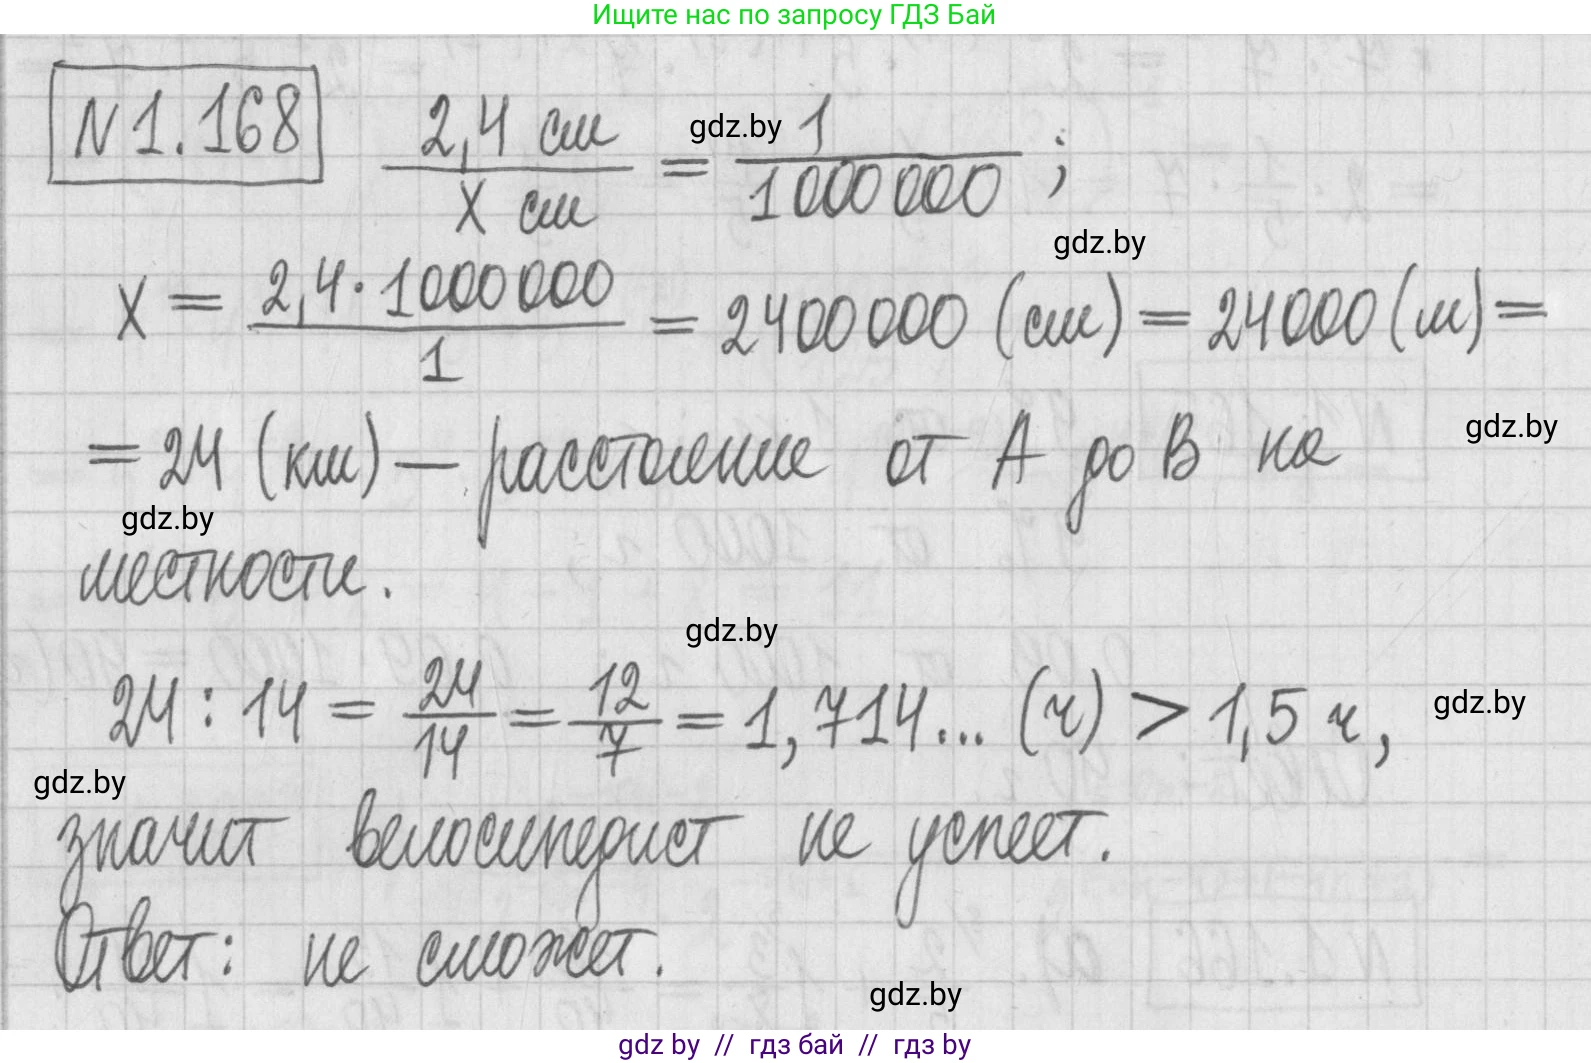 Ищите нас по запросу ГДЗ Бай
N 1.168 2,4 см / x см = 1 / 1000000 ;
gdz.by
gdz.by
x = 2,4 · 1000000 / 1 = 2400000 (см) = 24000 (м) =
= 24 (км) — расстояние от А до В на
gdz.by
gdz.by
местности.
gdz.by
24 : 14 = 24/14 = 12/7 = 1,714... (ч) > 1,5 ч,
gdz.by
gdz.by
значит велосипедист не успеет.
Ответ: не сможет.
gdz.by
gdz by // гдз бай // гдз by